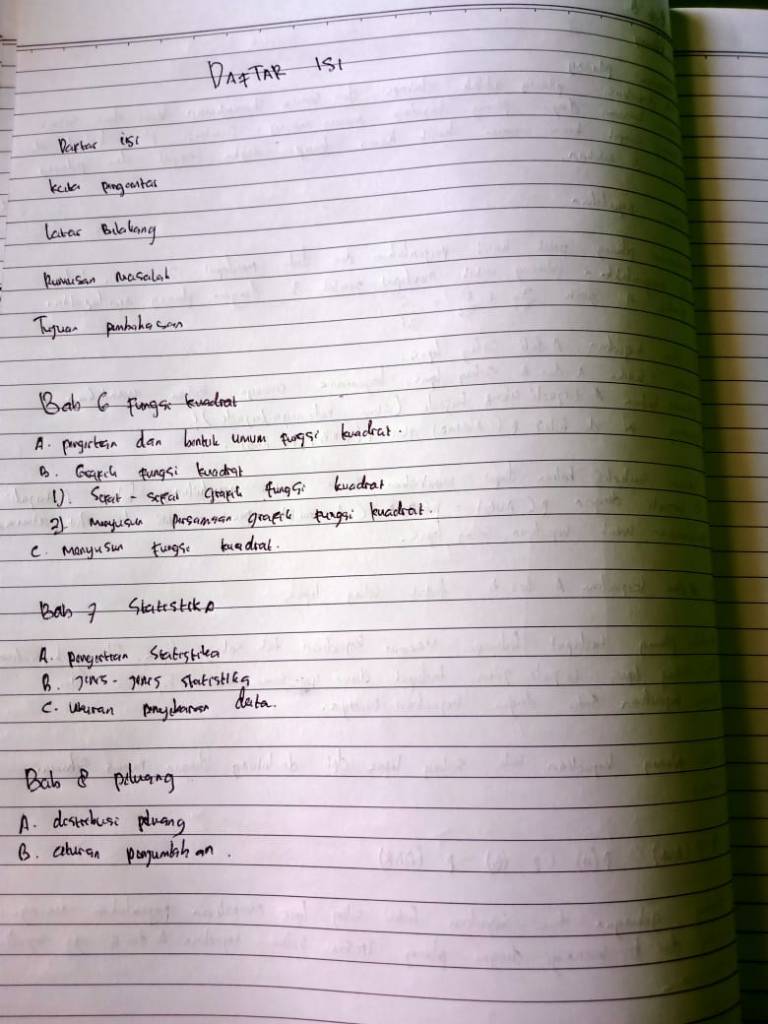 DAFTAR ISI
Daftar isi
kata pengantar
Latar Belakang
Rumusan Masalah
Tujuan pembahasan
Bab 6 fungsi kuadrat
A. pengertian dan bentuk umum fungsi kuadrat.
B. Grafik fungsi kuadrat
1). Sifat - sifat grafik fungsi kuadrat
2). Menyusun persamaan grafik fungsi kuadrat.
C. Menyusun fungsi kuadrat.
Bab 7 Statistika
A. pengertian statistika
B. jenis - jenis statistika
C. ukuran penyebaran data.
Bab 8 peluang
A. distribusi peluang
B. aturan penjumlahan.